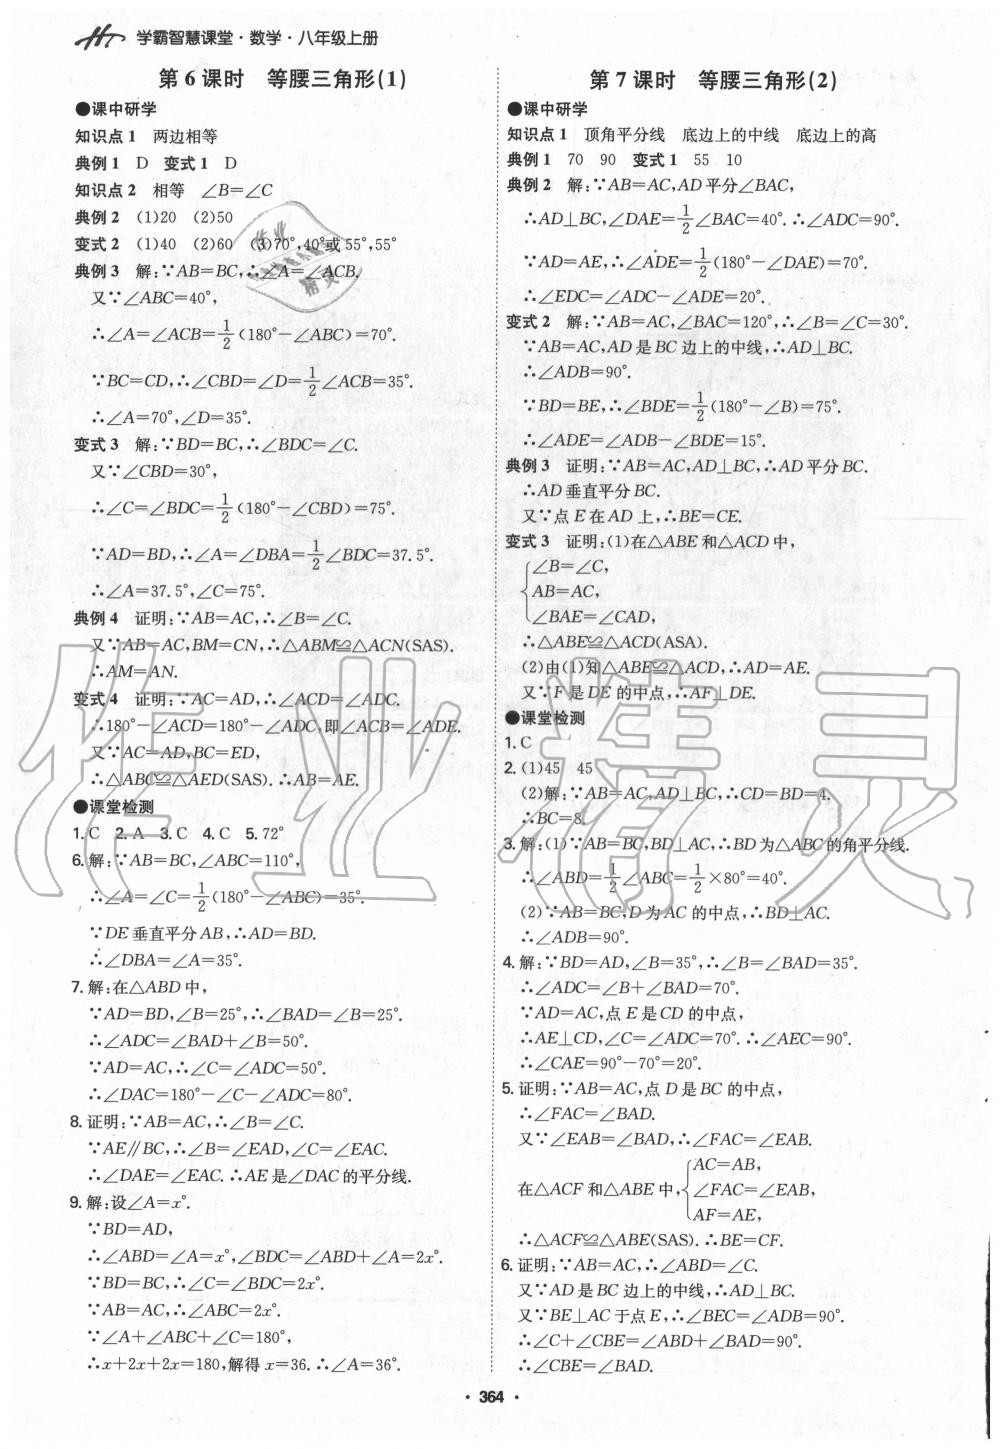 学霸智慧课堂·数学·八年级上册
第6课时 等腰三角形(1)
●课中研学
知识点1 两边相等
典例1 D 变式1 D
知识点2 相等 ∠B=∠C
典例2 (1)20 (2)50
变式2 (1)40 (2)60 (3)70°,40°或55°,55°
典例3 解:∵AB=BC,∴∠A=∠ACB,
又∵∠ABC=40°,
∴∠A=∠ACB=1/2(180°-∠ABC)=70°.
∵BC=CD,∴∠CBD=∠D=1/2∠ACB=35°.
∴∠A=70°,∠D=35°.
变式3 解:∵BD=BC,∴∠BDC=∠C.
又∵∠CBD=30°,
∴∠C=∠BDC=1/2(180°-∠CBD)=75°.
∵AD=BD,∴∠A=∠DBA=1/2∠BDC=37.5°.
∴∠A=37.5°,∠C=75°.
典例4 证明:∵AB=AC,∴∠B=∠C.
又∵AB=AC,BM=CN,∴△ABM≌△ACN(SAS).
∴AM=AN.
变式4 证明:∵AC=AD,∴∠ACD=∠ADC.
∴180°-∠ACD=180°-∠ADC,即∠ACB=∠ADE.
又∵AC=AD,BC=ED,
∴△ABC≌△AED(SAS).∴AB=AE.
●课堂检测
1.C 2.A 3.C 4.C 5.72°
6.解:∵AB=BC,∠ABC=110°,
∴∠A=∠C=1/2(180°-∠ABC)=35°.
∵DE垂直平分AB,∴AD=BD.
∴∠DBA=∠A=35°.
7.解:在△ABD中,
∵AD=BD,∠B=25°,∴∠BAD=∠B=25°.
∴∠ADC=∠BAD+∠B=50°.
∵AD=AC,∴∠C=∠ADC=50°.
∴∠DAC=180°-∠C-∠ADC=80°.
8.证明:∵AB=AC,∴∠B=∠C.
∵AE∥BC,∴∠B=∠EAD,∠C=∠EAC.
∴∠DAE=∠EAC.∴AE是∠DAC的平分线.
9.解:设∠A=x°.
∵BD=AD,
∴∠ABD=∠A=x°,∠BDC=∠ABD+∠A=2x°.
∵BD=BC,∴∠C=∠BDC=2x°.
∵AB=AC,∴∠ABC=2x°.
∵∠A+∠ABC+∠C=180°,
∴x+2x+2x=180,解得x=36.∴∠A=36°.
第7课时 等腰三角形(2)
●课中研学
知识点1 顶角平分线 底边上的中线 底边上的高
典例1 70 90 变式1 55 10
典例2 解:∵AB=AC,AD平分∠BAC,
∴AD⊥BC,∠DAE=1/2∠BAC=40°.∴∠ADC=90°.
∵AD=AE,∴∠ADE=1/2(180°-∠DAE)=70°.
∴∠EDC=∠ADC-∠ADE=20°.
变式2 解:∵AB=AC,∠BAC=120°,∴∠B=∠C=30°.
∵AB=AC,AD是BC边上的中线,∴AD⊥BC.
∴∠ADB=90°.
∵BD=BE,∴∠BDE=1/2(180°-∠B)=75°.
∴∠ADE=∠ADB-∠BDE=15°.
典例3 证明:∵AB=AC,AD⊥BC,∴AD平分BC.
∴AD垂直平分BC.
又∵点E在AD上,∴BE=CE.
变式3 证明:(1)在△ABE和△ACD中,
∠B=∠C,
AB=AC,
∠BAE=∠CAD,
∴△ABE≌△ACD(ASA).
(2)由(1)知△ABE≌△ACD,∴AD=AE.
又∵F是DE的中点,∴AF⊥DE.
●课堂检测
1.C
2.(1)45 45
(2)解:∵AB=AC,AD⊥BC,∴CD=BD=4.
∴BC=8.
3.解:(1)∵AB=BC,BD⊥AC,∴BD为∠ABC的角平分线.
∴∠ABD=1/2∠ABC=1/2×80°=40°.
(2)∵AB=BC,D为AC的中点,∴BD⊥AC.
∴∠ADB=90°.
4.解:∵BD=AD,∠B=35°,∴∠B=∠BAD=35°.
∴∠ADC=∠B+∠BAD=70°.
∵AD=AC,点E是CD的中点,
∴AE⊥CD,∠C=∠ADC=70°.∴∠AEC=90°.
∴∠CAE=90°-70°=20°.
5.证明:∵AB=AC,点D是BC的中点,
∴∠FAC=∠BAD.
又∵∠EAB=∠BAD,∴∠FAC=∠EAB.
AC=AB,
在△ACF和△ABE中,∠FAC=∠EAB,
AF=AE,
∴△ACF≌△ABE(SAS).∴BE=CF.
6.证明:∵AB=AC,∴∠ABD=∠C.
又∵AD是BC边上的中线,∴AD⊥BC.
又∵BE⊥AC于点E,∴∠BEC=∠ADB=90°.
∴∠C+∠CBE=∠ABD+∠BAD=90°.
∴∠CBE=∠BAD.
·364·
作业精灵